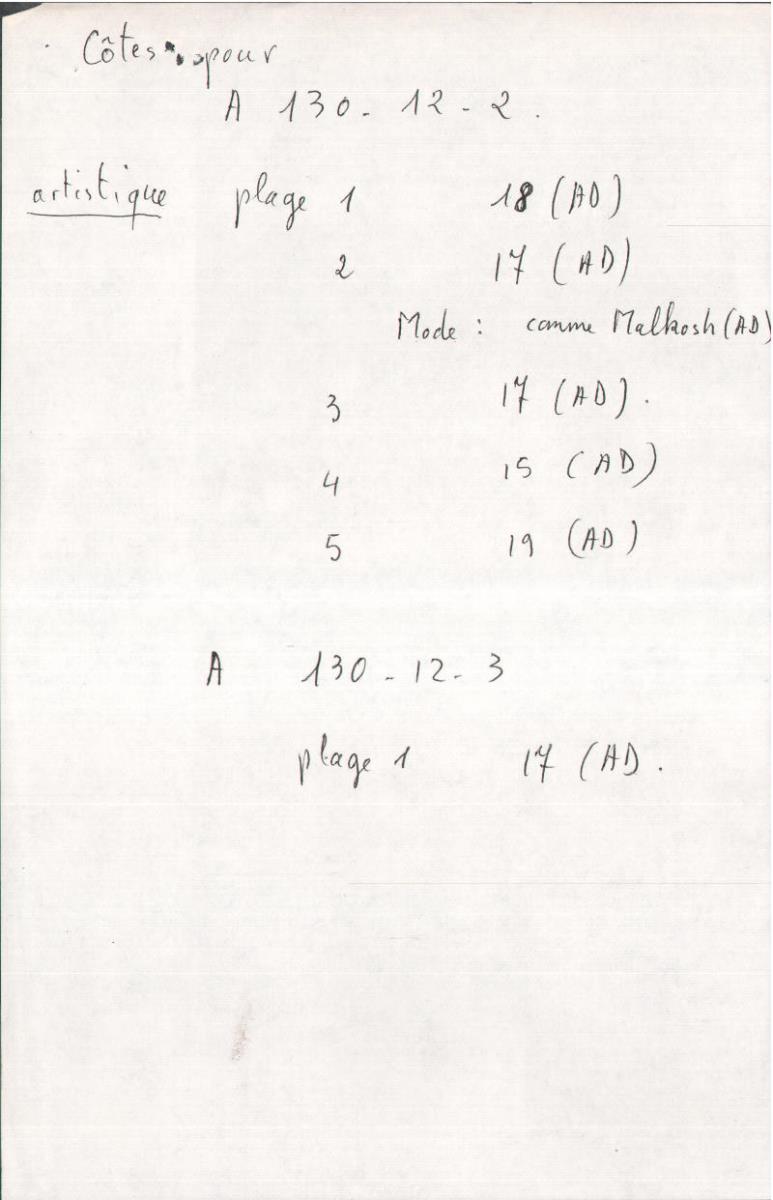 Côtes pour
A 130 - 12 - 2.
artistique plage 1 18 (AD)
2 17 (AD)
Mode : comme Malkosh (AD)
3 17 (AD).
4 15 (AD)
5 19 (AD)
A 130 - 12 - 3
plage 1 17 (AD.